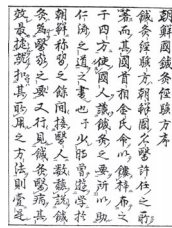 朝鮮國鍼灸經驗方序
鍼灸經驗方朝鮮國太醫許任之所
著而其國首相金氏命以鏤梓布之
于四方使國人識鍼灸之要所以助
仁濟之道之書也予少時遊學於
朝鮮習之餘間接醫人數聽說鍼
灸為醫家之要又行見鍼灸醫病其
效最捷就扣其所用之方法則實是